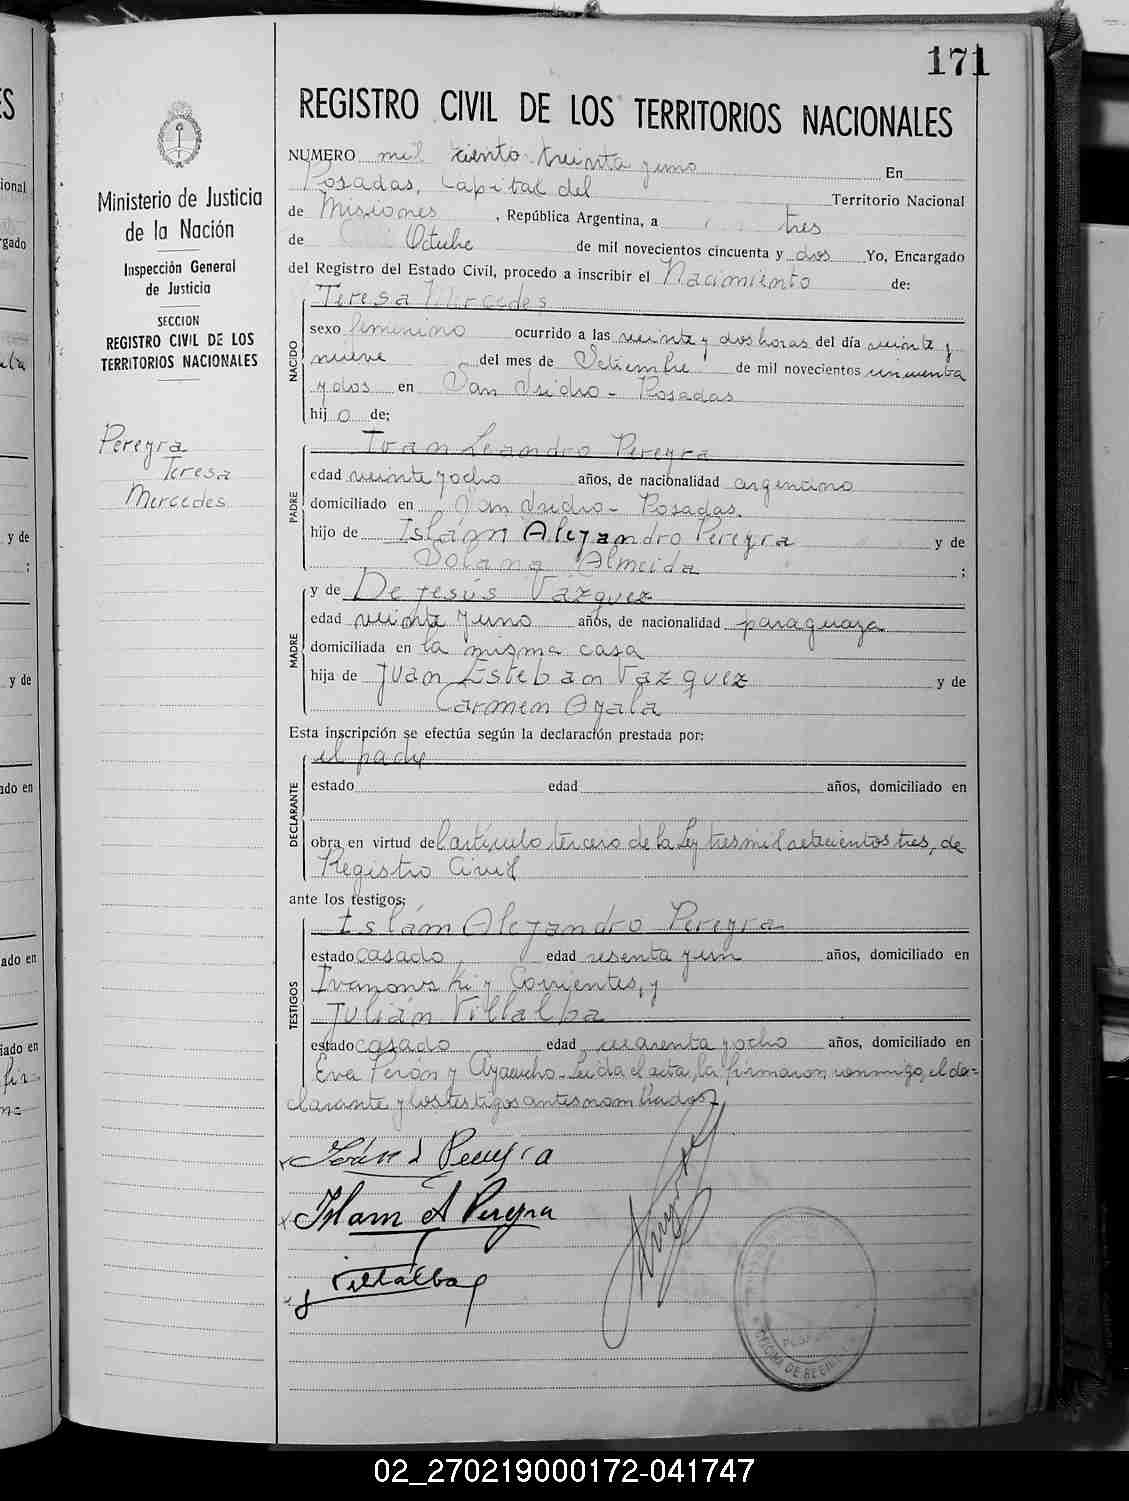 171
REGISTRO CIVIL DE LOS TERRITORIOS NACIONALES
Ministerio de Justicia
de la Nación
Inspección General
de Justicia
SECCION
REGISTRO CIVIL DE LOS
TERRITORIOS NACIONALES
Pereyra
Teresa
Mercedes
NUMERO mil ciento treinta y uno En
Posadas, Capital del Territorio Nacional
de Misiones, República Argentina, a tres
de Octubre de mil novecientos cincuenta y dos Yo, Encargado
del Registro del Estado Civil, procedo a inscribir el Nacimiento de:
Teresa Mercedes
NACIDO
sexo femenino ocurrido a las veinte y dos horas del día veinte y
nueve del mes de Setiembre de mil novecientos cincuenta
y dos en San Isidro - Posadas
hij o de:
PADRE
Iván Leandro Pereyra
edad veinte y ocho años, de nacionalidad argentino
domiciliado en San Isidro - Posadas.
hijo de Islám Alejandro Pereyra y de
Solana Almeida ;
MADRE
y de De Jesús Vázquez
edad veinte y uno años, de nacionalidad paraguaya
domiciliada en la misma casa
hija de Juan Esteban Vázquez y de
Carmen Ayala
Esta inscripción se efectúa según la declaración prestada por:
DECLARANTE
el padre
estado edad años, domiciliado en
obra en virtud del artículo tercero de la Ley tres mil setecientos tres, de
Registro Civil
ante los testigos:
TESTIGOS
Islám Alejandro Pereyra
estado casado edad sesenta y un años, domiciliado en
Ivanowski y Corrientes, y
Julián Villalba
estado casado edad cuarenta y ocho años, domiciliado en
Eva Perón y Ayacucho - Leida el acta, la firmaron conmigo, el de=
clarante y los testigos antes nombrados
Pereyra
Islam A Pereyra
J Villalba
OFICINA DE
02_270219000172-041747